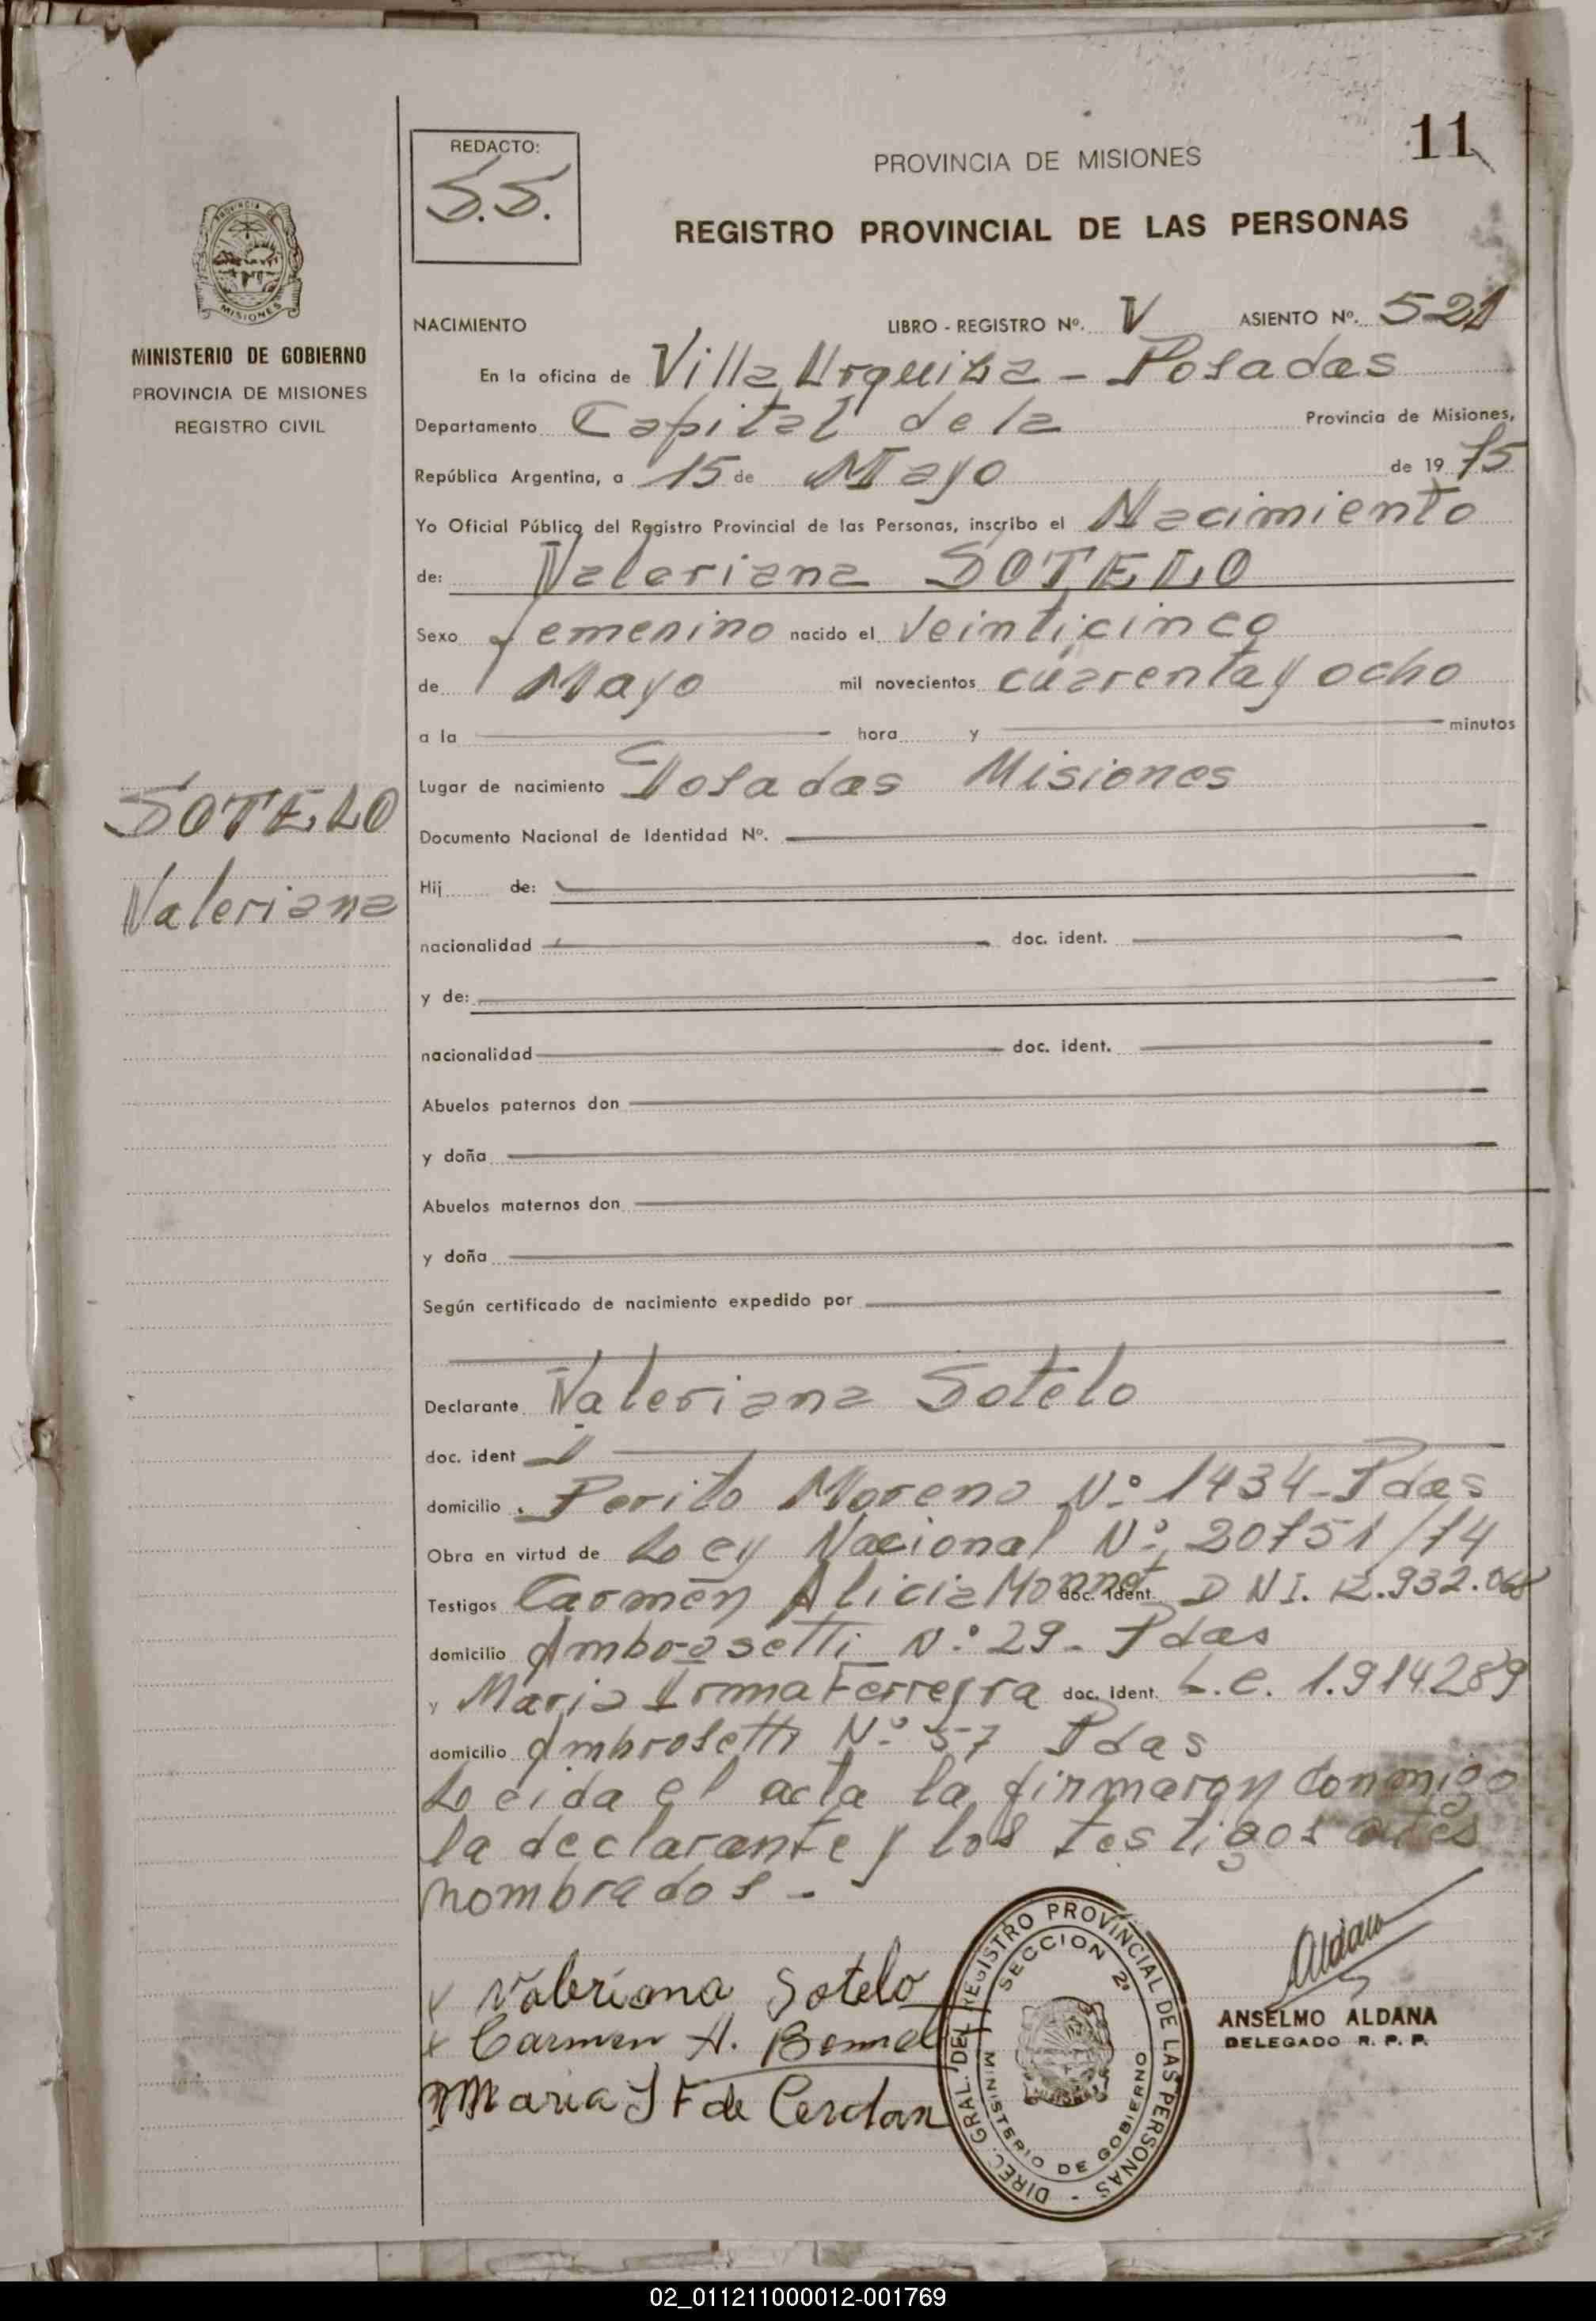 11
REDACTO:
S.S.
PROVINCIA DE MISIONES
REGISTRO PROVINCIAL DE LAS PERSONAS
PROVINCIA DE
MISIONES
MINISTERIO DE GOBIERNO
PROVINCIA DE MISIONES
REGISTRO CIVIL
NACIMIENTO LIBRO - REGISTRO Nº. V ASIENTO Nº. 521
En la oficina de Villa Urquiza - Posadas
Departamento Capital de la Provincia de Misiones,
República Argentina, a 15 de Mayo de 19 75
Yo Oficial Público del Registro Provincial de las Personas, inscribo el Nacimiento
de: Valeriana SOTELO
Sexo femenino nacido el Veinticinco
de Mayo mil novecientos cuarenta y ocho
a la hora y minutos
Lugar de nacimiento Posadas Misiones
SOTELO
Valeriana
Documento Nacional de Identidad Nº.
Hij de:
nacionalidad doc. ident.
y de:
nacionalidad doc. ident.
Abuelos paternos don
y doña
Abuelos maternos don
y doña
Según certificado de nacimiento expedido por
Declarante Valeriana Sotelo
doc. ident
domicilio Perito Moreno Nº 1434 - Pdas
Obra en virtud de Ley Nacional Nº 20751/74
Testigos Carmen Alicia doc. ident. D N I.
domicilio Ambrosetti Nº 29 - Pdas
y Maria Irma Ferreyra doc. ident. L.C. 1.914.289
domicilio Ambrosetti Nº 57 Pdas
Leida el acta la firmaron conmigo
la declarante y los testigos antes
nombrados -
x Valeriana Sotelo
x Carmen A. Bonnet
Maria I F de Cerdan
DIREC. GRAL. DEL REGISTRO PROVINCIAL DE LAS PERSONAS -
SECCION 2ª
MINISTERIO DE GOBIERNO
Aldana
ANSELMO ALDANA
DELEGADO R. P. P.
02_011211000012-001769